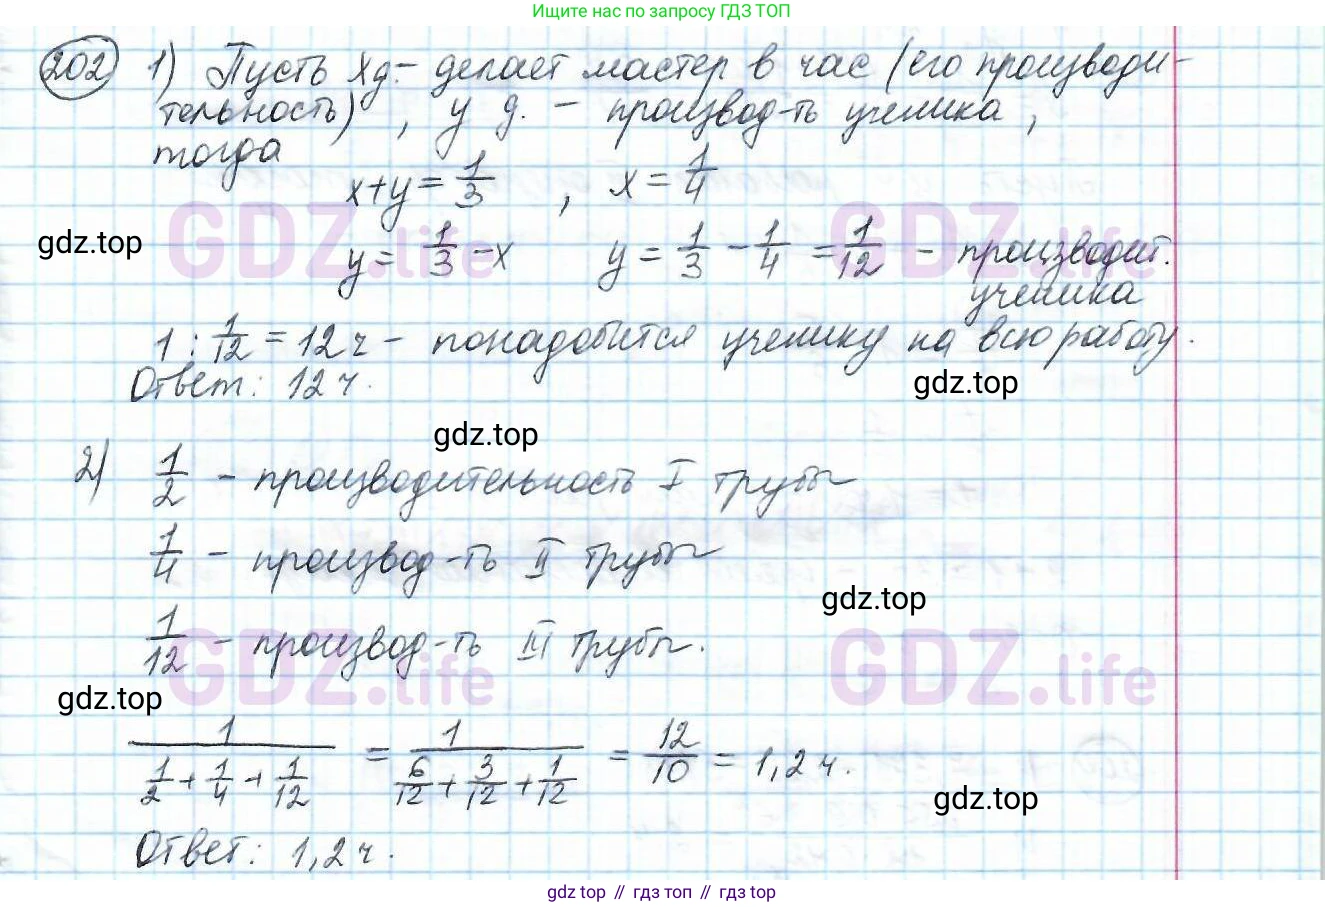 Ищите нас по запросу ГДЗ ТОП
202 1) Пусть х д. – делает мастер в час (его производи-
тельность) , у д. – производ-ть ученика ,
тогда
x+y = 1/3 , x = 1/4
GDZ.life GDZ.life
gdz.top
y = 1/3 - x y = 1/3 - 1/4 = 1/12 – производит.
ученика
1 : 1/12 = 12 ч – понадобится ученику на всю работу.
Ответ: 12 ч.
gdz.top
gdz.top
2) 1/2 – производительность I трубы
1/4 – производ-ть II трубы
gdz.top
1/12 – производ-ть III трубы.
GDZ.life GDZ.life
gdz.top
1/(1/2 + 1/4 + 1/12) = 1/(6/12 + 3/12 + 1/12) = 12/10 = 1,2 ч.
gdz.top
Ответ: 1,2 ч.
gdz top // гдз топ // гдз top